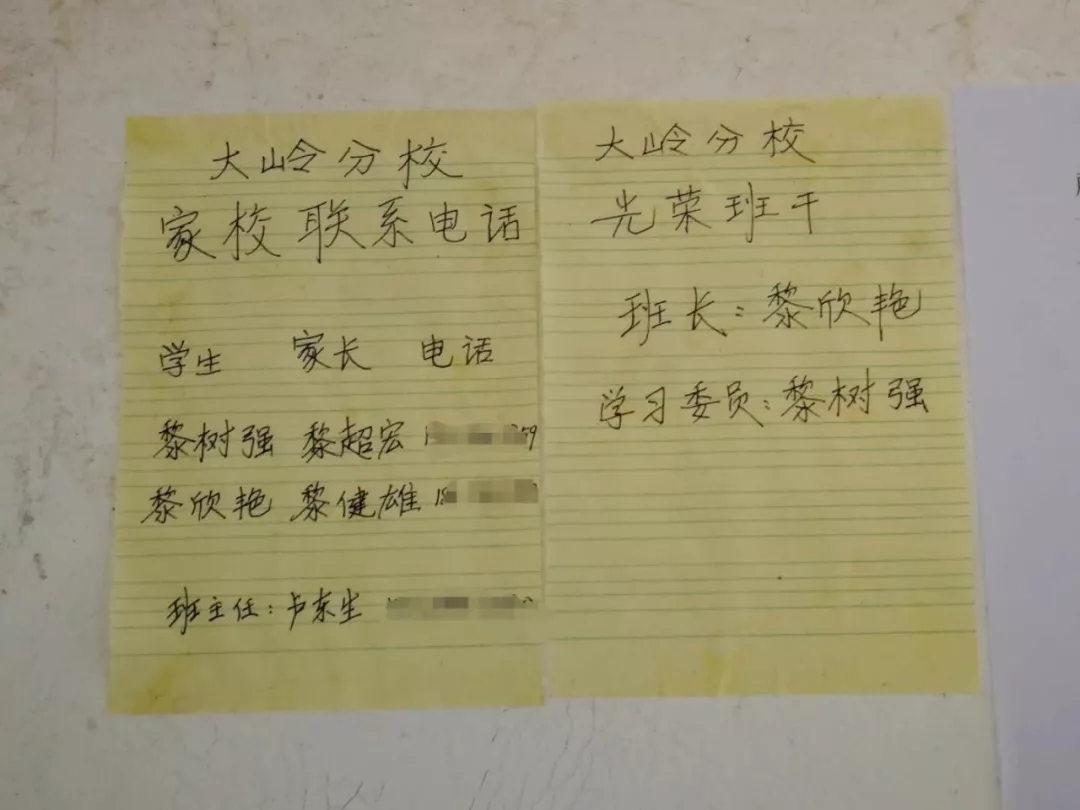 大岭分校
家校联系电话
学生 家长 电话
黎树强 黎超宏
黎欣艳 黎健雄
班主任:卢东生
大岭分校
光荣班干
班长:黎欣艳
学习委员:黎树强